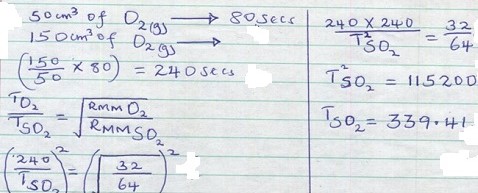 50cm³ of O₂(g) ⟶ 80secs
150cm³ of O₂(g) ⟶
(150/50 × 80) = 240secs
TO₂/TSO₂ = √(RMM O₂/RMM SO₂)
(240/TSO₂)² = (√(32/64))²
240 × 240/T²SO₂ = 32/64
T²SO₂ = 115200
TSO₂ = 339.41